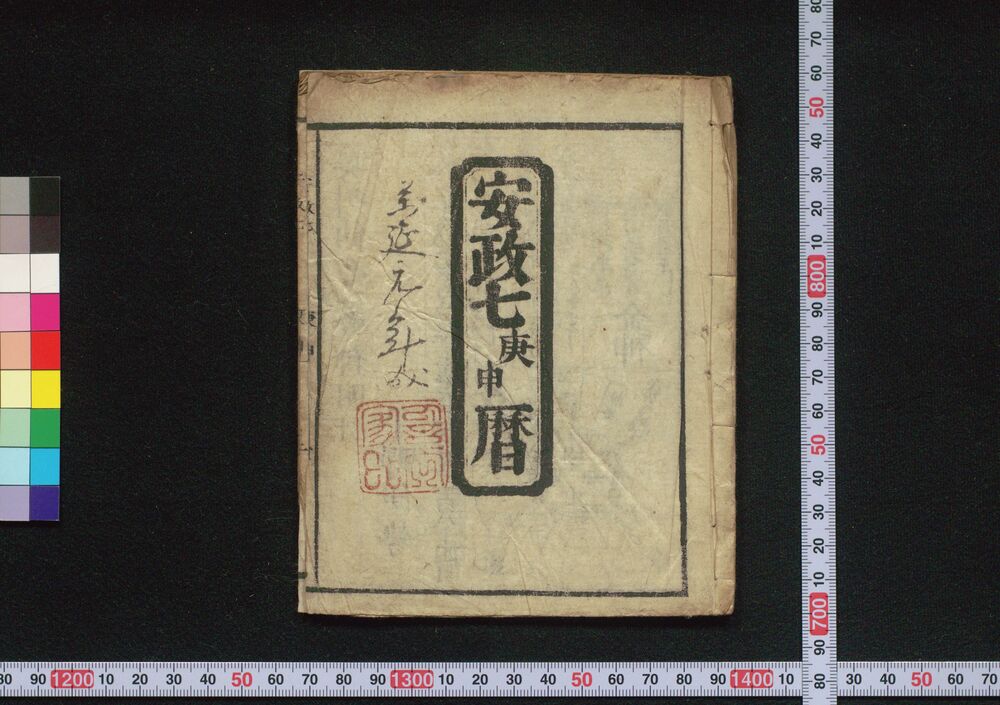 安政七庚申暦
万延元年
80 90 1200 10 20 30 40 50 60 70 80 90 1300 10 20 30 40 50 60 70 80 90 1400 10
30 40 50 60 70
80
70
60
50
40
30
20
10
800
90
80
70
60
50
40
30
20
10
700
90
80